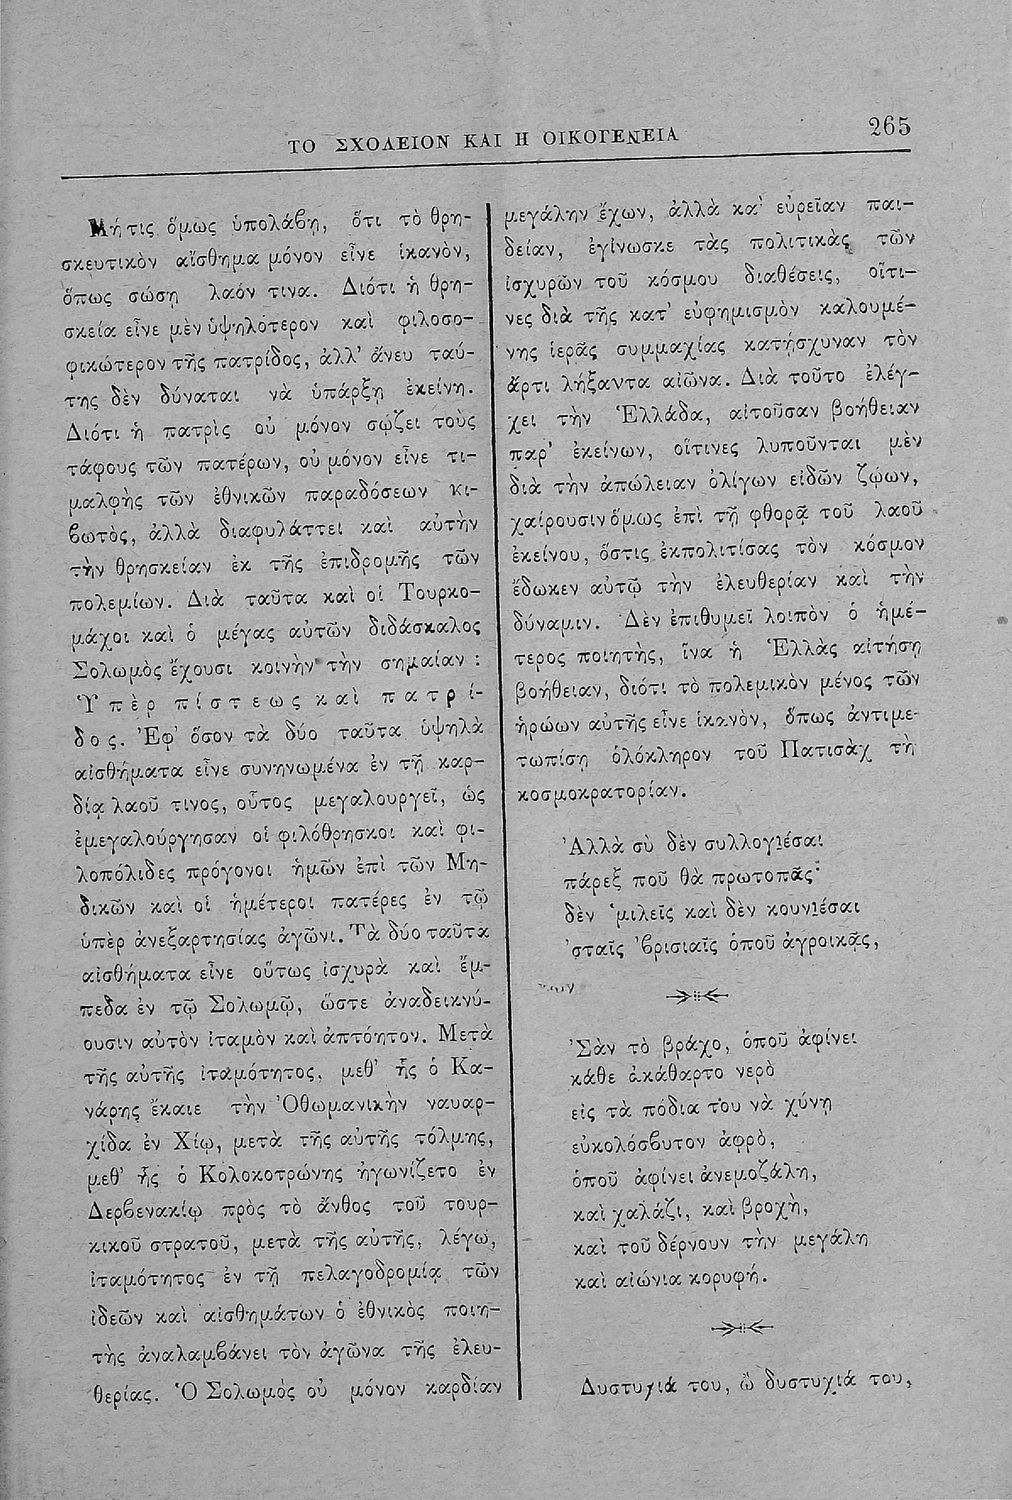 ΤΟ ΣΧΟΛΕΙΟΝ ΚΑΙ Η ΟΙΚΟΓΕΝΕΙΑ
265
Μή τις ὅμως ὑπολάβῃ, ὅτι τὸ θρη-
σκευτικὸν αἴσθημα μόνον εἶνε ἱκανὸν,
ὅπως σώσῃ λαόν τινα. Διότι ἡ θρη-
σκεία εἶνε μὲν ὑψηλότερον καὶ φιλοσο-
φικώτερον τῆς πατρίδος, ἀλλ' ἄνευ ταύ-
της δὲν δύναται νὰ ὑπάρξῃ ἐκείνη.
Διότι ἡ πατρὶς οὐ μόνον σῴζει τοὺς
τάφους τῶν πατέρων, οὐ μόνον εἶνε τι-
μαλφὴς τῶν ἐθνικῶν παραδόσεων κι-
βωτὸς, ἀλλὰ διαφυλάττει καὶ αὐτὴν
τὴν θρησκείαν ἐκ τῆς ἐπιδρομῆς τῶν
πολεμίων. Διὰ ταῦτα καὶ οἱ Τουρκο-
μάχοι καὶ ὁ μέγας αὐτῶν διδάσκαλος
Σολωμὸς ἔχουσι κοινὴν τὴν σημαίαν :
Ὑπὲρ πίστεως καὶ πατρί-
δος. Ἐφ' ὅσον τὰ δύο ταῦτα ὑψηλὰ
αἰσθήματα εἶνε συνηνωμένα ἐν τῇ καρ-
δίᾳ λαοῦ τινος, οὗτος μεγαλουργεῖ, ὡς
ἐμεγαλούργησαν οἱ φιλόθρησκοι καὶ φι-
λοπόλιδες πρόγονοι ἡμῶν ἐπὶ τῶν Μη-
δικῶν καὶ οἱ ἡμέτεροι πατέρες ἐν τῷ
ὑπὲρ ἀνεξαρτησίας ἀγῶνι. Τὰ δύο ταῦτα
αἰσθήματα εἶνε οὕτως ἰσχυρὰ καὶ ἔμ-
πεδα ἐν τῷ Σολωμῷ, ὥστε ἀναδεικνύ-
ουσιν αὐτὸν ἰταμὸν καὶ ἀπτόητον. Μετὰ
τῆς αὐτῆς ἰταμότητος, μεθ' ἧς ὁ Κα-
νάρης ἔκαιε τὴν Ὀθωμανικὴν ναυαρ-
χίδα ἐν Χίῳ, μετὰ τῆς αὐτῆς τόλμης,
μεθ' ἧς ὁ Κολοκοτρώνης ἠγωνίζετο ἐν
Δερβενακίῳ πρὸς τὸ ἄνθος τοῦ τουρ-
κικοῦ στρατοῦ, μετὰ τῆς αὐτῆς, λέγω,
ἰταμότητος ἐν τῇ πελαγοδρομίᾳ τῶν
ἰδεῶν καὶ αἰσθημάτων ὁ ἐθνικὸς ποιη-
τὴς ἀναλαμβάνει τὸν ἀγῶνα τῆς ἐλευ-
θερίας. Ὁ Σολωμὸς οὐ μόνον καρδίαν
μεγάλην ἔχων, ἀλλὰ κα' εὐρεῖαν παι-
δείαν, ἐγίνωσκε τὰς πολιτικὰς τῶν
ἰσχυρῶν τοῦ κόσμου διαθέσεις, οἵτι-
νες διὰ τῆς κατ' εὐφημισμὸν καλουμέ-
νης ἱερᾶς συμμαχίας κατῄσχυναν τὸν
ἄρτι λήξαντα αἰῶνα. Διὰ τοῦτο ἐλέγ-
χει τὴν Ἑλλάδα, αἰτοῦσαν βοήθειαν
παρ' ἐκείνων, οἵτινες λυποῦνται μὲν
διὰ τὴν ἀπώλειαν ὀλίγων εἰδῶν ζῴων,
χαίρουσιν ὅμως ἐπὶ τῇ φθορᾷ τοῦ λαοῦ
ἐκείνου, ὅστις ἐκπολιτίσας τὸν κόσμον
ἔδωκεν αὐτῷ τὴν ἐλευθερίαν καὶ τὴν
δύναμιν. Δὲν ἐπιθυμεῖ λοιπὸν ὁ ἡμέ-
τερος ποιητὴς, ἵνα ἡ Ἑλλὰς αἰτήσῃ
βοήθειαν, διότι τὸ πολεμικὸν μένος τῶν
ἡρώων αὐτῆς εἶνε ἱκανὸν, ὅπως ἀντιμε-
τωπίσῃ ὁλόκληρον τοῦ Πατισὰχ τὴ
κοσμοκρατορίαν.
Ἀλλὰ σὺ δὲν συλλογιέσαι
πάρεξ ποῦ θὰ πρωτοπᾷς·
δὲν 'μιλεῖς καὶ δὲν κουνιέσαι
'σταῖς 'βρισιαῖς ὁποῦ ἀγροικᾷς,
Σὰν τὸ βράχο, ὁποῦ ἀφίνει
κάθε ἀκάθαρτο νερὸ
εἰς τὰ πόδια του νὰ χύνῃ
εὐκολόσβυτον ἀφρὸ,
ὁποῦ ἀφίνει ἀνεμοζάλη,
καὶ χαλάζι, καὶ βροχὴ,
καὶ τοῦ δέρνουν τὴν μεγάλη
καὶ αἰώνια κορυφή.
Δυστυχιά του, ὢ δυστυχιά του,